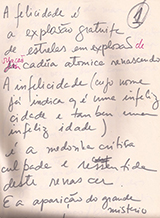 A felicidade é
a explosão gratuita
de estrelas em explosão de
cadeia atômica renascendo
A infelicidade (cujo nome
já indica q é uma infeliz
cidade e tambem uma
infeliz idade)
é a medonha critica
culpada e ressentida
deste renascer.
E a aparição do grande
mistério
1